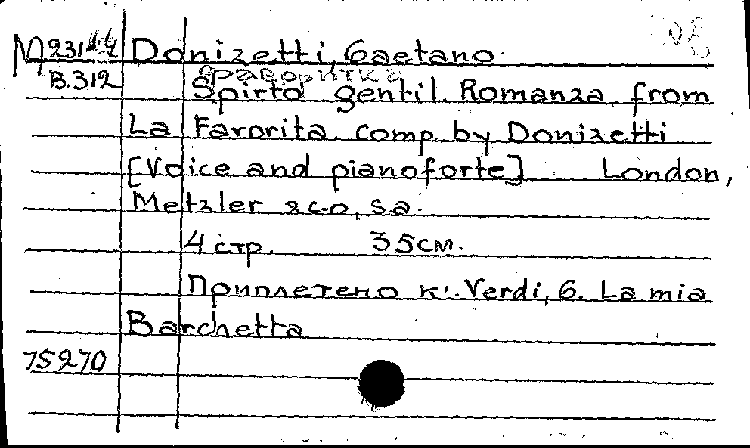 М23144 Donizetti, Gaetano.
В.312 Фаворитка
Spirto gentil. Romanza from
La Favorita comp. by Donizetti
[Voice and pianoforte] London,
Metzler & co, s.a.
4 стр. 35см.
Приплетено к: Verdi, G. La mia
Barchetta
75270